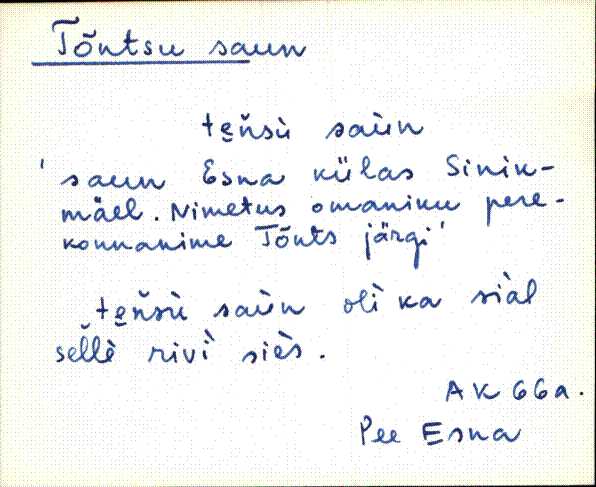 Tõntsu saun
te̮ňsù saùn
'saun Esna külas Sinik-
mäel. Nimetus omaniku pere-
konnanime Tõnts järgi'
te̮ňsù saùn olì ka siàl
sellè rivì siès.
AK 66a.
Pee Esna